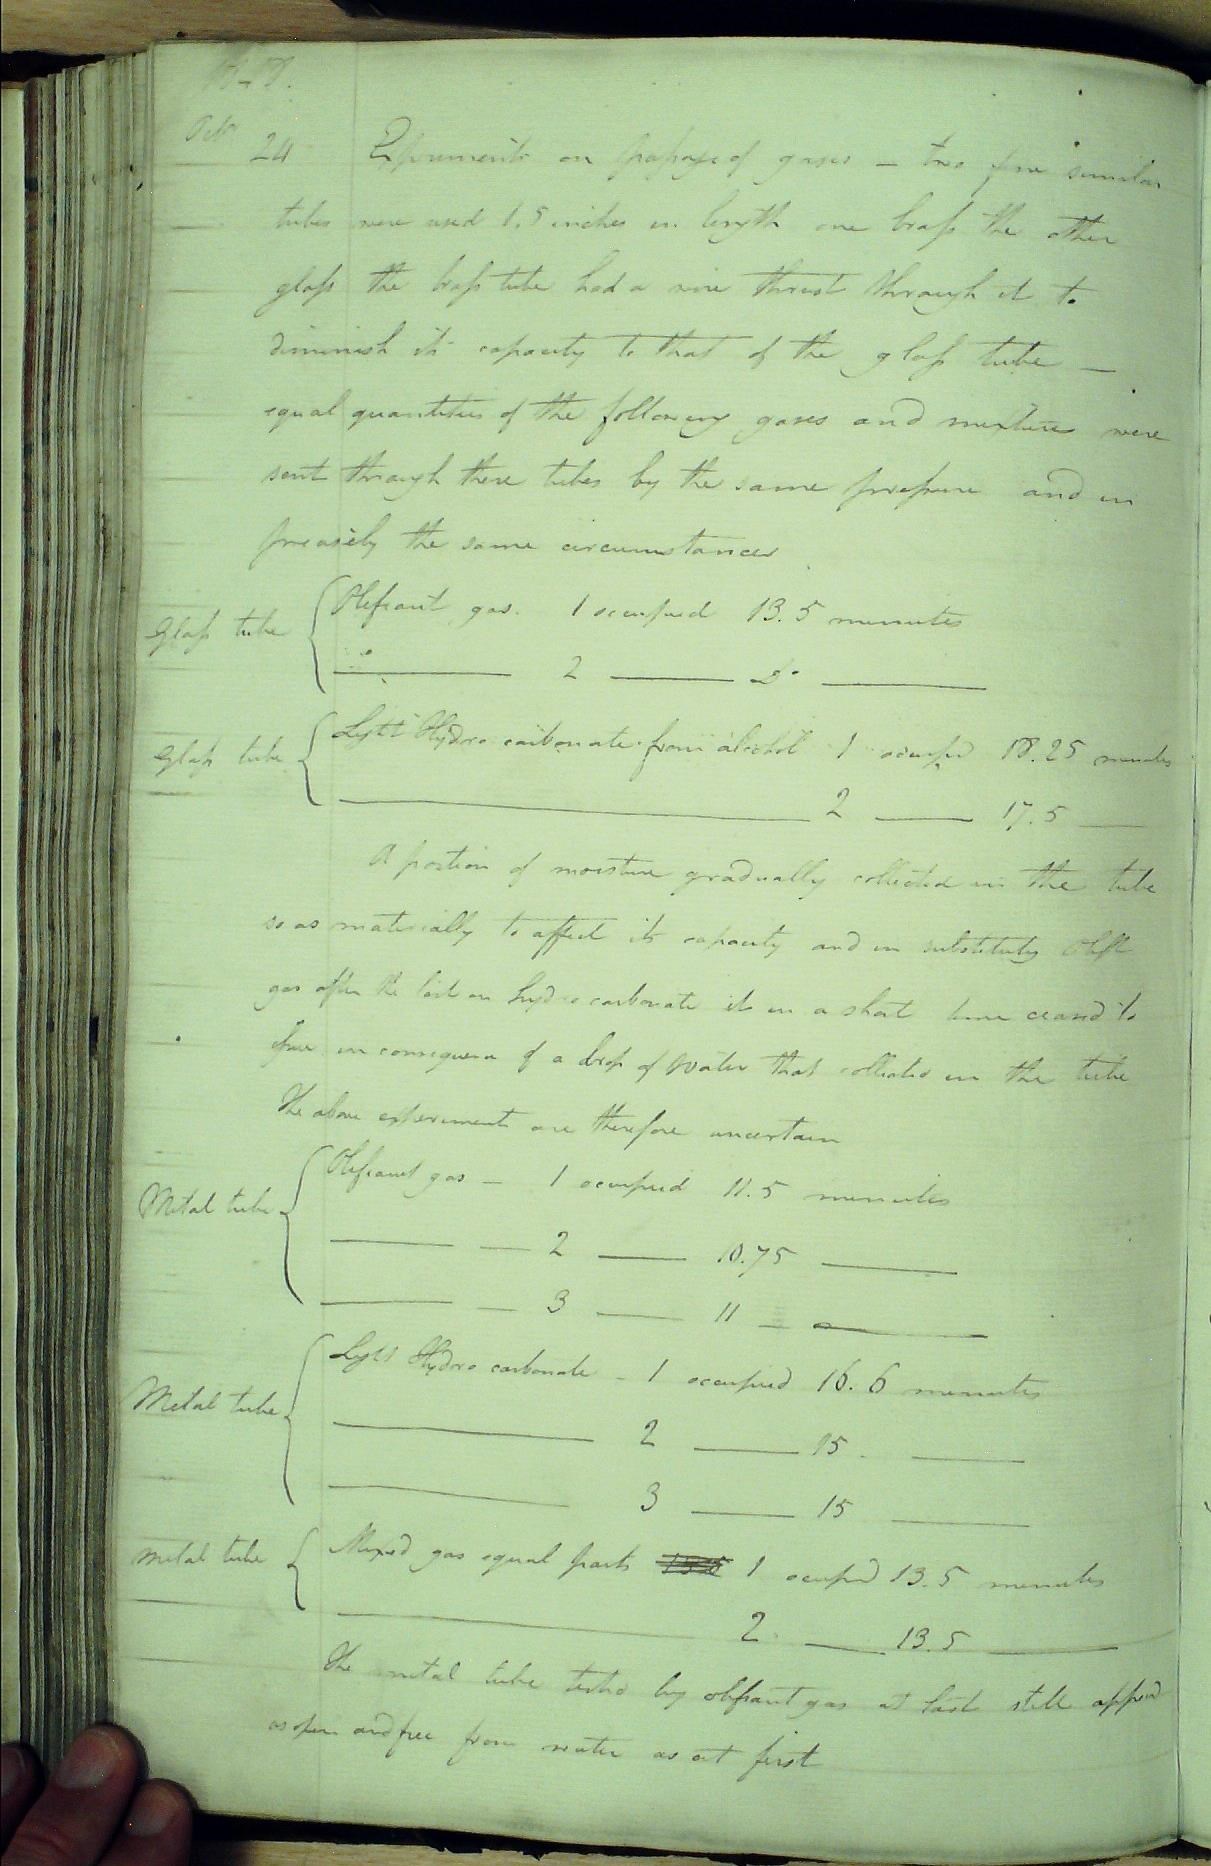 1818.
Octr
24 Experiments on passage of gases — two fine similar
tubes were used 1.5 inches in length one brass the other
glass the brass tube had a wire thrust through it to
diminish its capacity to that of the glass tube —
equal quantities of the following gases and mixtures were
sent through these tubes by the same pressure and in
precisely the same circumstances
Glass tube { Olefiant gas. 1 occupied 13.5 minutes
——— 2 ——— Do ———
Glass tube { Light Hydro carbonate from alcohol 1 occupied 18.25 minutes
——— 2 ——— 17.5 ———
A portion of moisture gradually collected in the tube
so as materially to affect its capacity and on substituting Oleft
gas after the last on hydro carbonate it in a short time ceased to
pass in consequence of a drop of water that collected in the tube
The above experiments are therefore uncertain
Metal tube { Olefiant gas — 1 occupied 11.5 minutes
——— — 2 ——— 10.75 ———
——— — 3 ——— 11 — ———
Metal tube { Light Hydro carbonate - 1 occupied 16.6 minutes
——— 2 ——— 15. ———
——— 3 ——— 15 ———
Metal tube { Mixed gas equal parts 1 occupied 13.5 minutes
——— 2 ——— 13.5 ———
The metal tube tested by olefiant gas at last still appeared
as open and free from water as at first